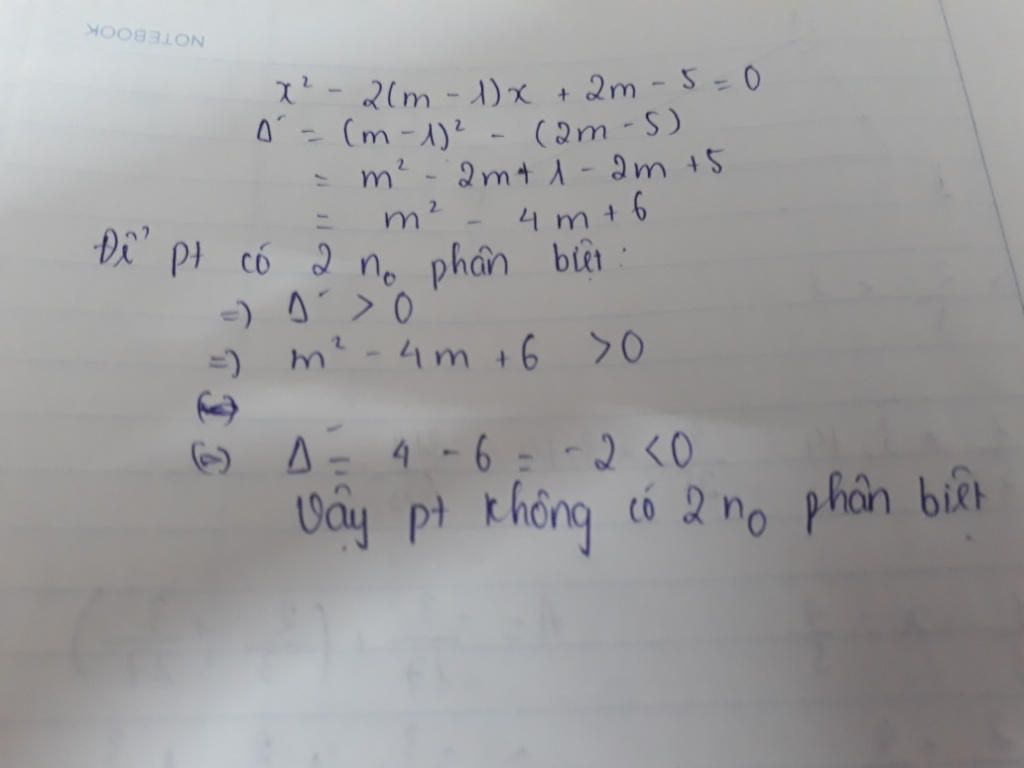 NOTEBOOK
x² - 2(m - 1)x + 2m - 5 = 0
Δ' = (m - 1)² - (2m - 5)
= m² - 2m + 1 - 2m + 5
= m² - 4m + 6
Để pt có 2 n₀ phân biệt :
=) Δ' > 0
=) m² - 4m + 6 > 0
(=) Δ' = 4 - 6 = -2 < 0
Vậy pt không có 2 n₀ phân biệt